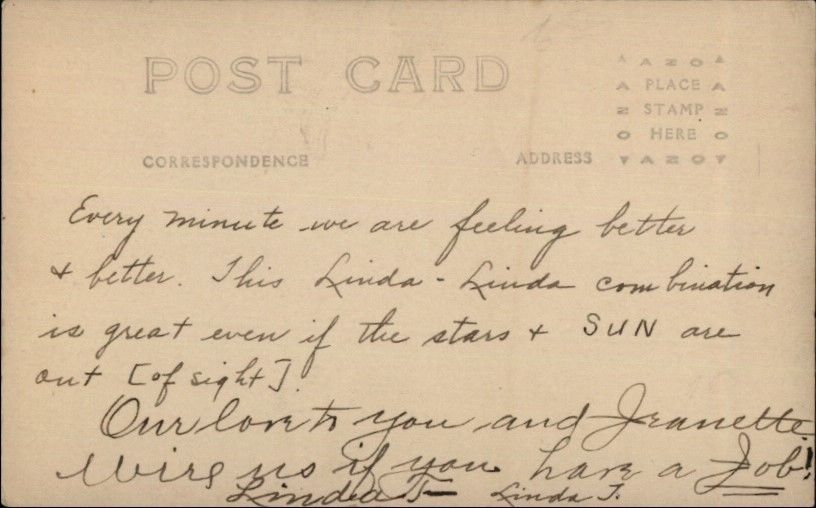 POST CARD
AZO
PLACE
STAMP
HERE
AZO
CORRESPONDENCE
ADDRESS
Every minute we are feeling better
+ better. This Linda - Linda combination
is great even if the stars + SUN are
out [of sight].
Our love to you and Jeanette
Wire us if you have a Job!
Linda T— Linda T.